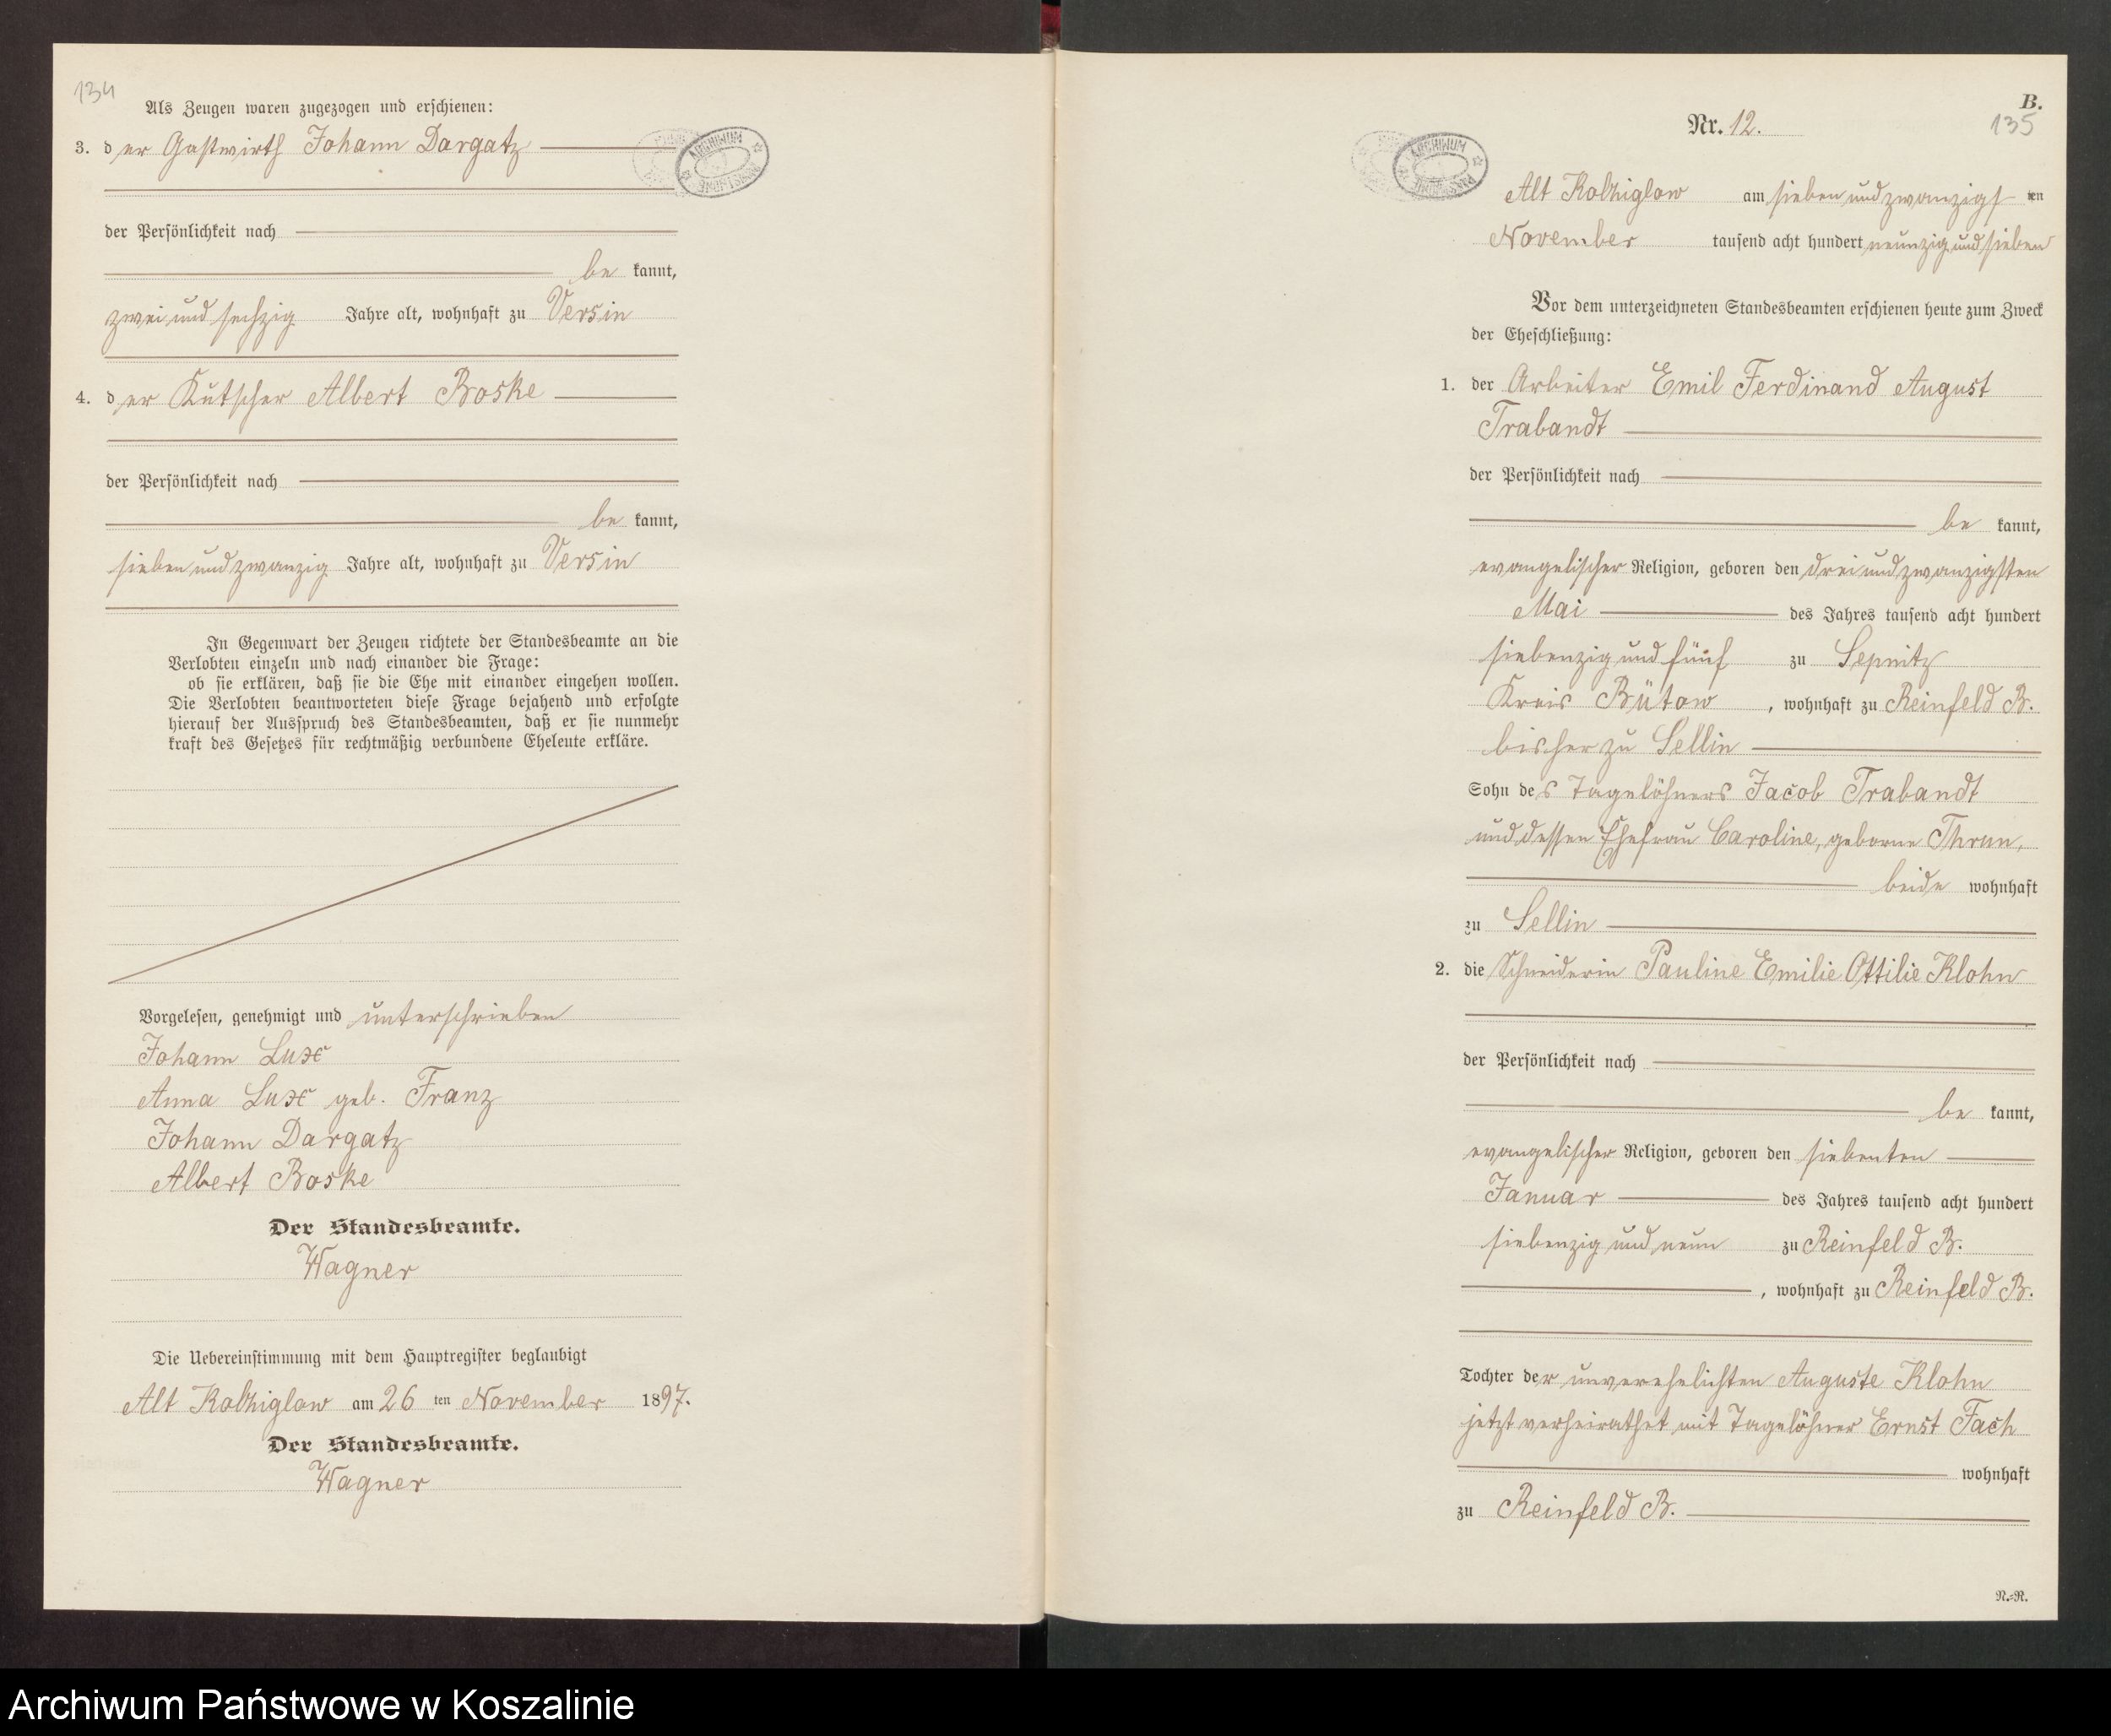 134
Als Zeugen waren zugezogen und erschienen:
3. der Gastwirth Johann Dargatz
der Persönlichkeit nach
be kannt,
zwei und sechzig Jahre alt, wohnhaft zu Versin
4. der Kutscher Albert Boske
der Persönlichkeit nach
be kannt,
sieben und zwanzig Jahre alt, wohnhaft zu Versin
In Gegenwart der Zeugen richtete der Standesbeamte an die
Verlobten einzeln und nach einander die Frage:
ob sie erklären, daß sie die Ehe mit einander eingehen wollen.
Die Verlobten beantworteten diese Frage bejahend und erfolgte
hierauf der Ausspruch des Standesbeamten, daß er sie nunmehr
kraft des Gesetzes für rechtmäßig verbundene Eheleute erkläre.
Vorgelesen, genehmigt und unterschrieben
Johann Lux
Anna Lux geb. Franz
Johann Dargatz
Albert Boske
Der Standesbeamte.
Wagner
Die Uebereinstimmung mit dem Hauptregister beglaubigt
Alt Kolziglow am 26 ten November 1897.
Der Standesbeamte.
Wagner
ARCHIWUM
B.
Nr. 12.
135
ARCHIWUM
Alt Kolziglow am sieben und zwanzigsten
November tausend acht hundert neunzig und sieben
Vor dem unterzeichneten Standesbeamten erschienen heute zum Zweck
der Eheschließung:
1. der Arbeiter Emil Ferdinand August
Trabandt
der Persönlichkeit nach
be kannt,
evangelischer Religion, geboren den drei und zwanzigsten
Mai des Jahres tausend acht hundert
siebenzig und fünf zu Sepnitz
Kreis Bütow, wohnhaft zu Reinfeld B.
bisher zu Sellin
Sohn des Tagelöhners Jacob Trabandt
und dessen Ehefrau Caroline, geborne Thrun,
beide wohnhaft
zu Sellin
2. die Schneiderin Pauline Emilie Ottilie Klohn
der Persönlichkeit nach
be kannt,
evangelischer Religion, geboren den siebenten
Januar des Jahres tausend acht hundert
siebenzig und neun zu Reinfeld B.
, wohnhaft zu Reinfeld B.
Tochter der unverehelichten Auguste Klohn
jetzt verheirathet mit Tagelöhner Ernst Fach
wohnhaft
zu Reinfeld B.
N.=R.
Archiwum Państwowe w Koszalinie